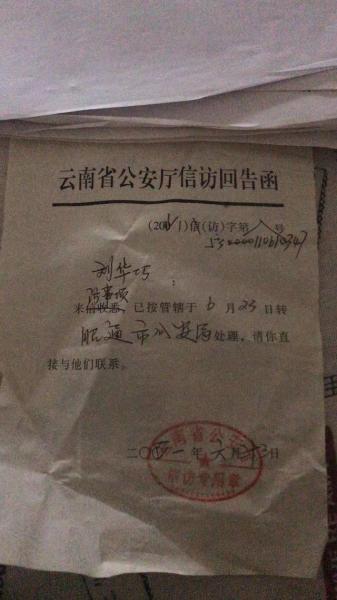 云南省公安厅信访回告函
(2011)信(访)字第 号
刘华巧:
来信收悉 已按管辖于6月23日转
昭通市公安局处理,请你直
接与他们联系。
二〇一一年六月 日
云南省公安厅
信访专用章